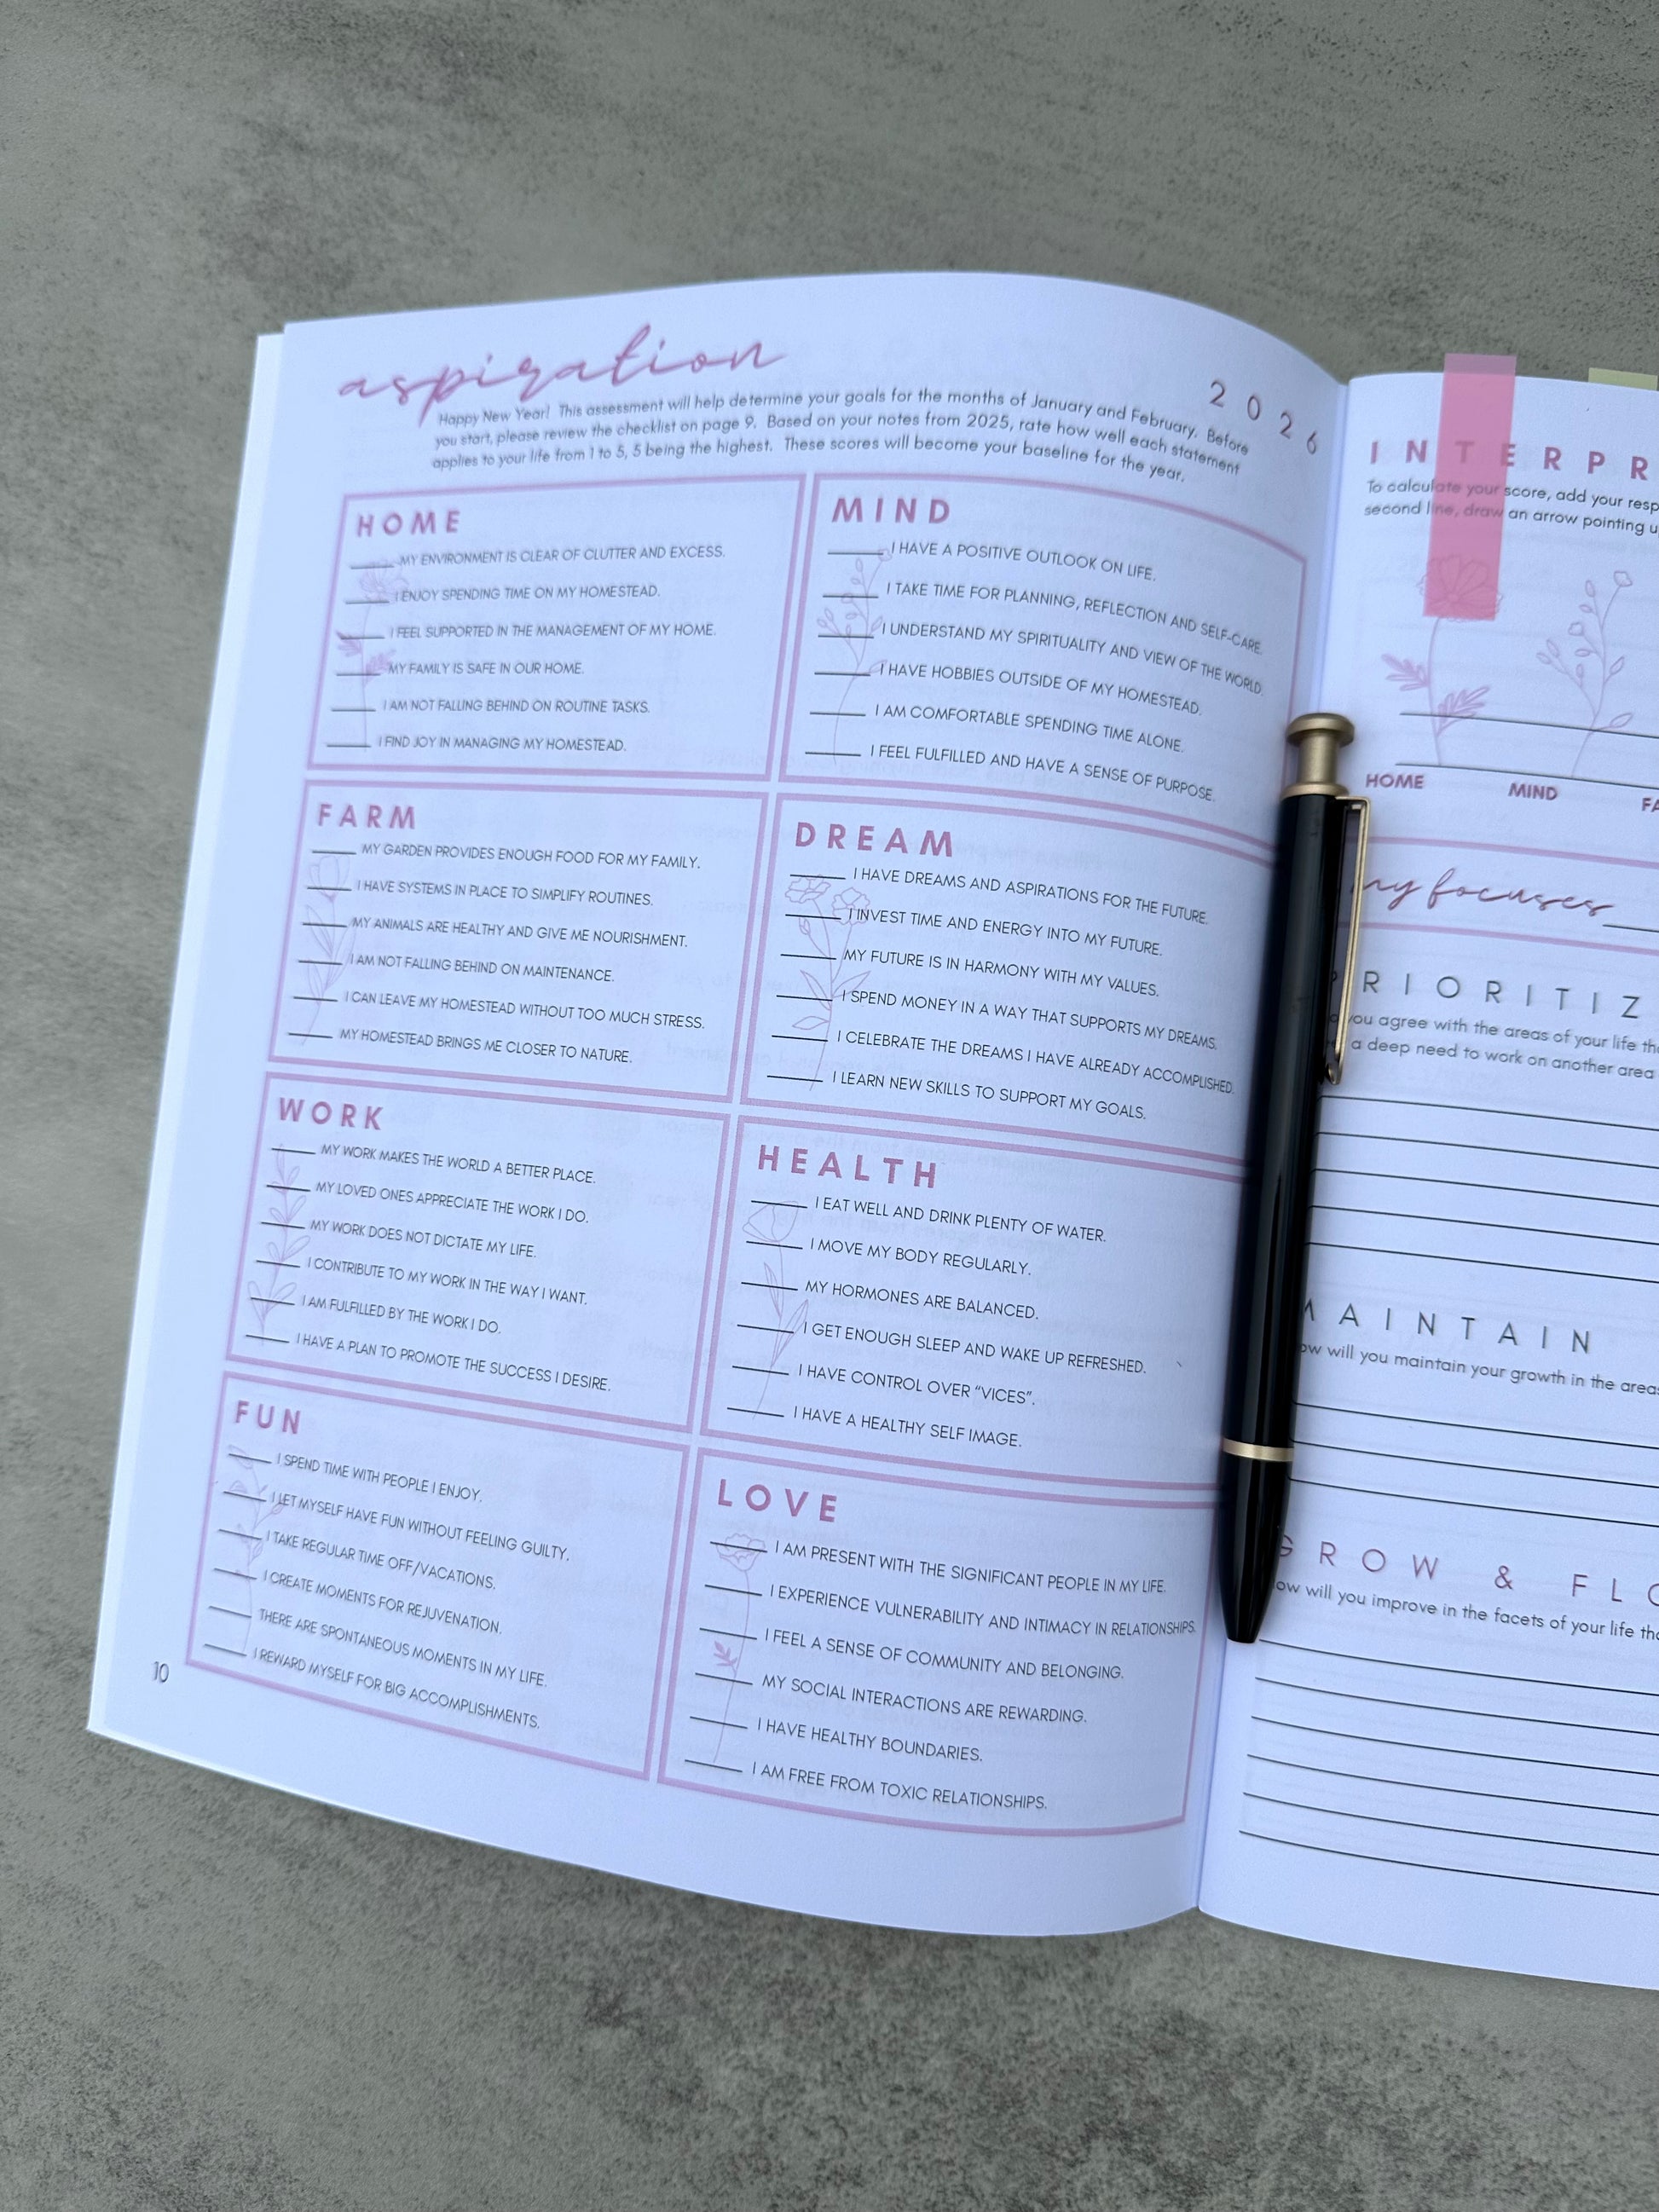 aspiration
2026
Happy New Year! This assessment will help determine your goals for the months of January and February. Before
you start, please review the checklist on page 9. Based on your notes from 2025, rate how well each statement
applies to your life from 1 to 5, 5 being the highest. These scores will become your baseline for the year.
HOME
MY ENVIRONMENT IS CLEAR OF CLUTTER AND EXCESS.
I ENJOY SPENDING TIME ON MY HOMESTEAD.
I FEEL SUPPORTED IN THE MANAGEMENT OF MY HOME.
MY FAMILY IS SAFE IN OUR HOME.
I AM NOT FALLING BEHIND ON ROUTINE TASKS.
I FIND JOY IN MANAGING MY HOMESTEAD.
MIND
I HAVE A POSITIVE OUTLOOK ON LIFE.
I TAKE TIME FOR PLANNING, REFLECTION AND SELF-CARE.
I UNDERSTAND MY SPIRITUALITY AND VIEW OF THE WORLD.
I HAVE HOBBIES OUTSIDE OF MY HOMESTEAD.
I AM COMFORTABLE SPENDING TIME ALONE.
I FEEL FULFILLED AND HAVE A SENSE OF PURPOSE.
FARM
MY GARDEN PROVIDES ENOUGH FOOD FOR MY FAMILY.
I HAVE SYSTEMS IN PLACE TO SIMPLIFY ROUTINES.
MY ANIMALS ARE HEALTHY AND GIVE ME NOURISHMENT.
I AM NOT FALLING BEHIND ON MAINTENANCE.
I CAN LEAVE MY HOMESTEAD WITHOUT TOO MUCH STRESS.
MY HOMESTEAD BRINGS ME CLOSER TO NATURE.
DREAM
I HAVE DREAMS AND ASPIRATIONS FOR THE FUTURE.
I INVEST TIME AND ENERGY INTO MY FUTURE.
MY FUTURE IS IN HARMONY WITH MY VALUES.
I SPEND MONEY IN A WAY THAT SUPPORTS MY DREAMS.
I CELEBRATE THE DREAMS I HAVE ALREADY ACCOMPLISHED.
I LEARN NEW SKILLS TO SUPPORT MY GOALS.
WORK
MY WORK MAKES THE WORLD A BETTER PLACE.
MY LOVED ONES APPRECIATE THE WORK I DO.
MY WORK DOES NOT DICTATE MY LIFE.
I CONTRIBUTE TO MY WORK IN THE WAY I WANT.
I AM FULFILLED BY THE WORK I DO.
I HAVE A PLAN TO PROMOTE THE SUCCESS I DESIRE.
HEALTH
I EAT WELL AND DRINK PLENTY OF WATER.
I MOVE MY BODY REGULARLY.
MY HORMONES ARE BALANCED.
I GET ENOUGH SLEEP AND WAKE UP REFRESHED.
I HAVE CONTROL OVER “VICES”.
I HAVE A HEALTHY SELF IMAGE.
FUN
I SPEND TIME WITH PEOPLE I ENJOY.
I LET MYSELF HAVE FUN WITHOUT FEELING GUILTY.
I TAKE REGULAR TIME OFF/VACATIONS.
I CREATE MOMENTS FOR REJUVENATION.
THERE ARE SPONTANEOUS MOMENTS IN MY LIFE.
I REWARD MYSELF FOR BIG ACCOMPLISHMENTS.
LOVE
I AM PRESENT WITH THE SIGNIFICANT PEOPLE IN MY LIFE.
I EXPERIENCE VULNERABILITY AND INTIMACY IN RELATIONSHIPS.
I FEEL A SENSE OF COMMUNITY AND BELONGING.
MY SOCIAL INTERACTIONS ARE REWARDING.
I HAVE HEALTHY BOUNDARIES.
I AM FREE FROM TOXIC RELATIONSHIPS.
10
INTERPR
To calculate your score, add your resp
second line, draw an arrow pointing u
HOME MIND FA
my focuses
PRIORITIZ
you agree with the areas of your life th
a deep need to work on another area
MAINTAIN
ow will you maintain your growth in the area
GROW & FLO
ow will you improve in the facets of your life tha